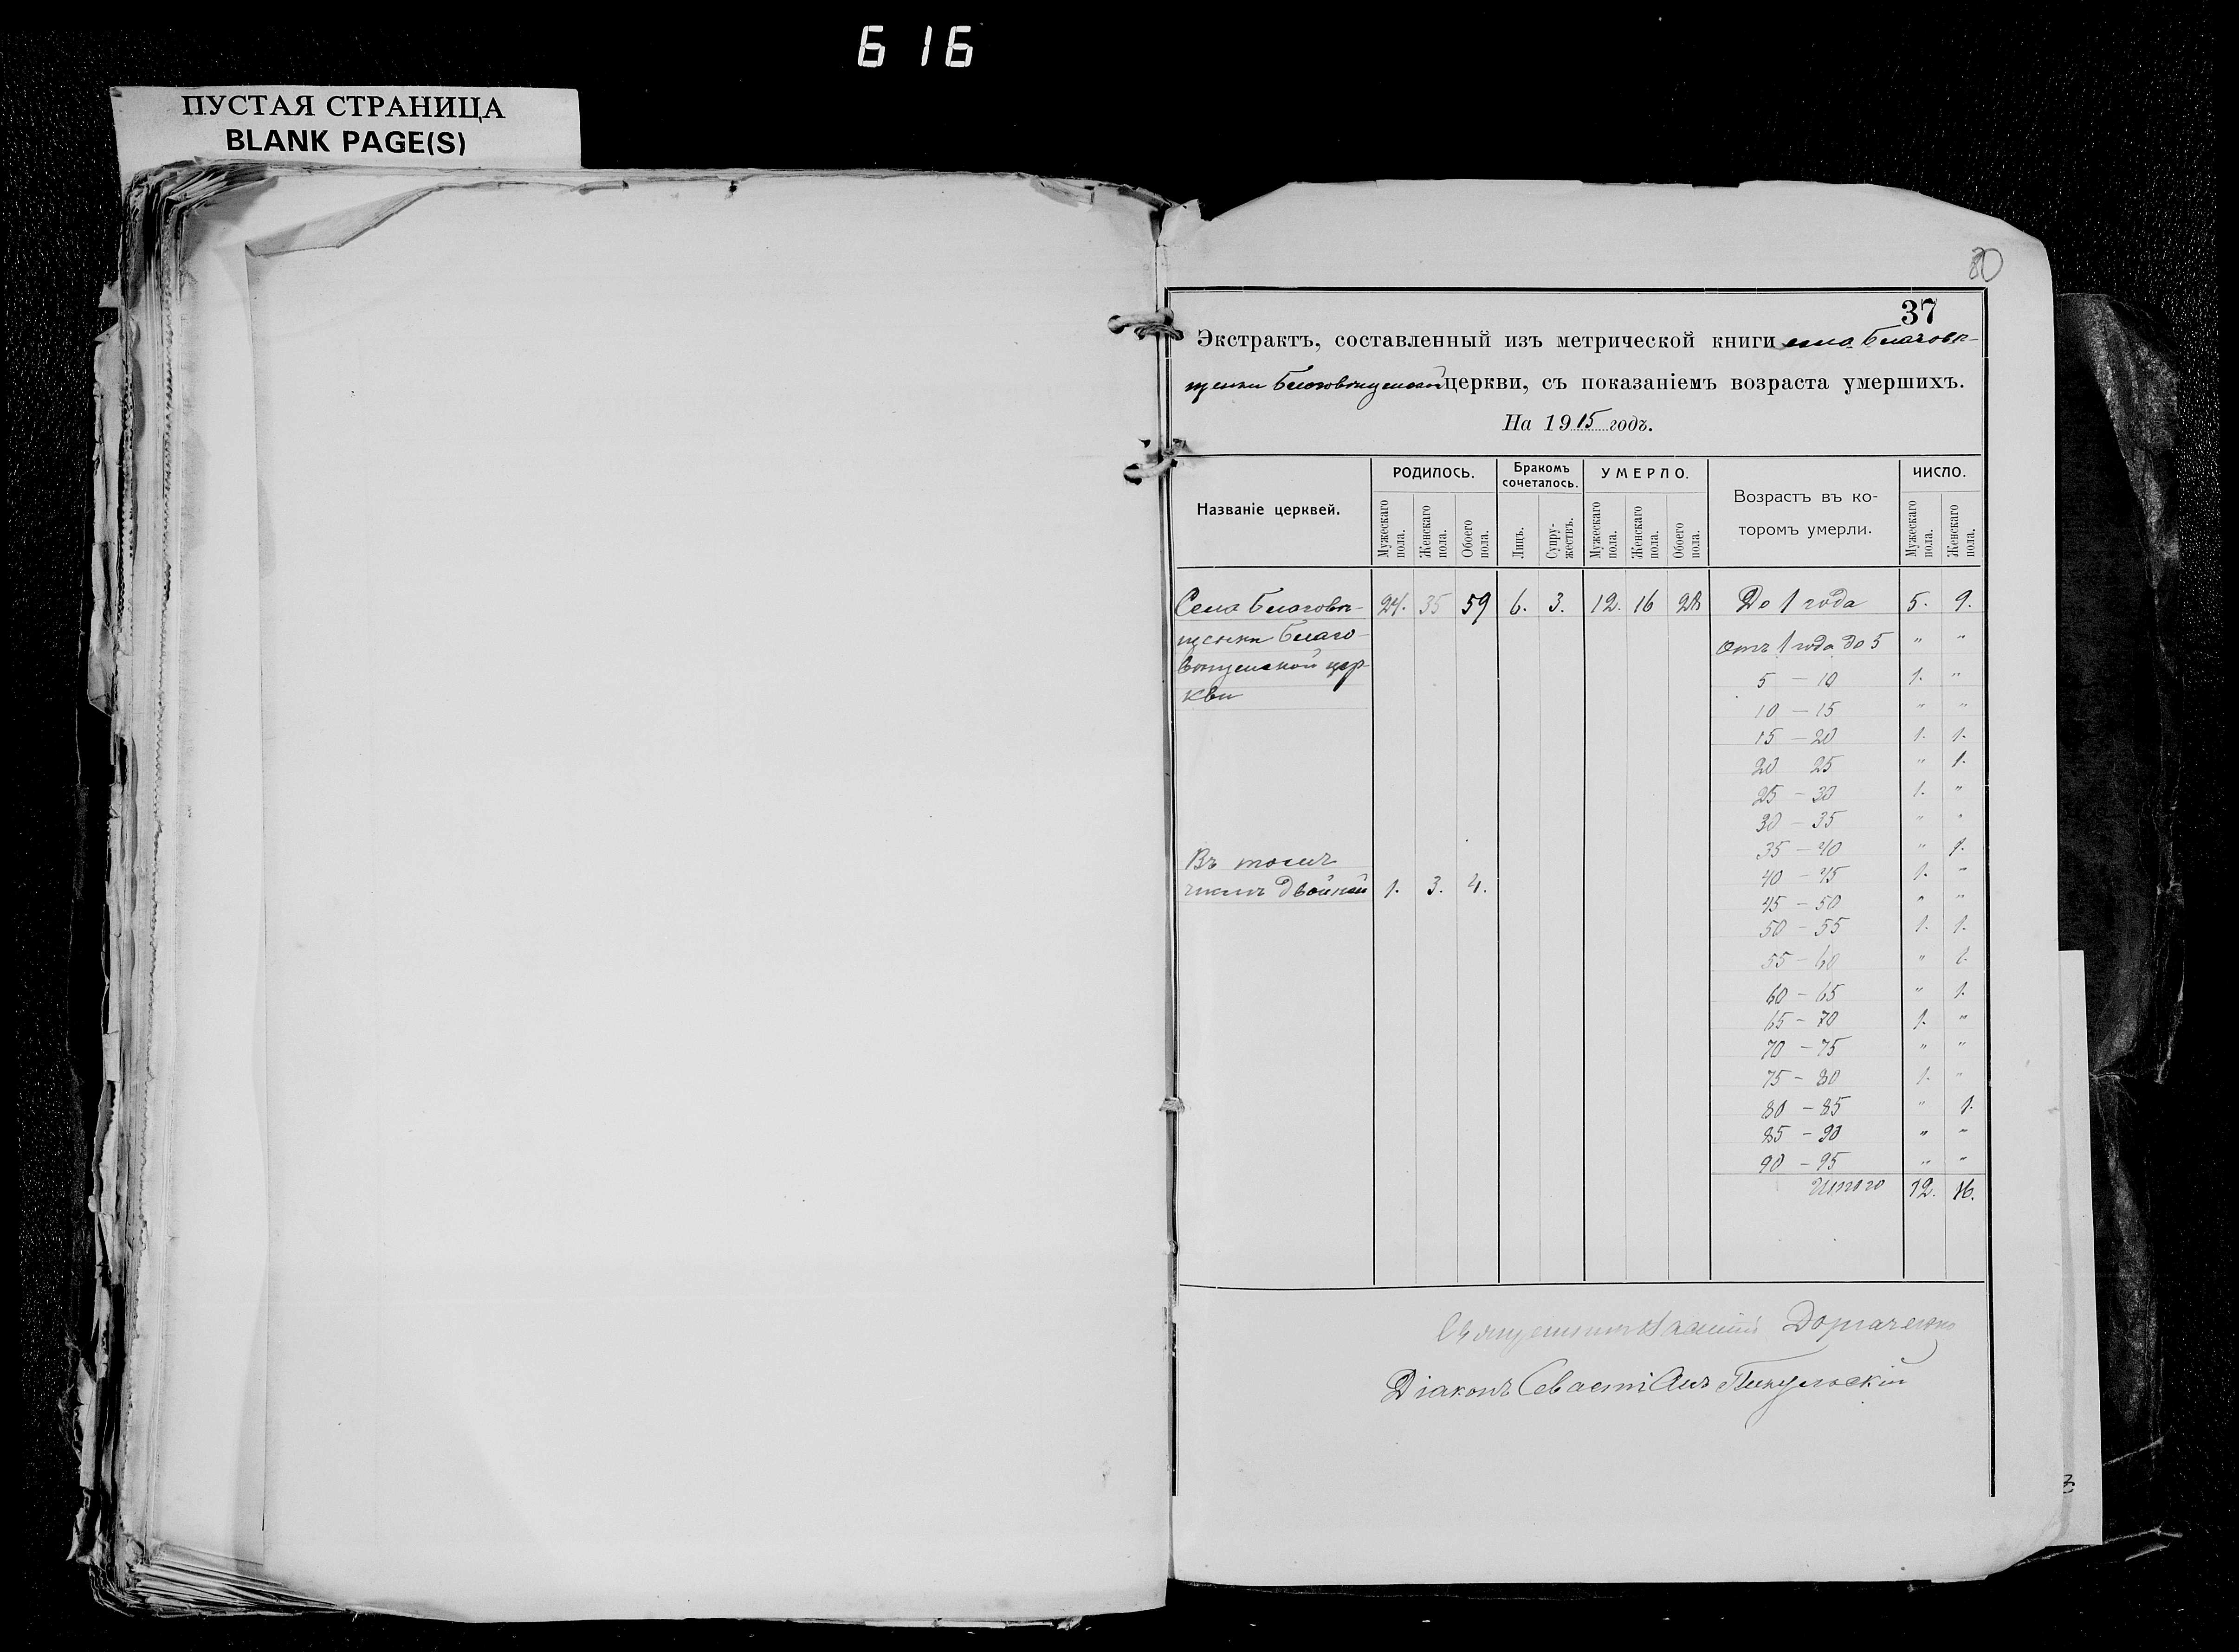 616
ПУСТАЯ СТРАНИЦА
BLANK PAGE(S)
80
37
Экстрактъ, составленный изъ метрической книги села Благовѣ-
щенки Благовѣщенской церкви, съ показаніемъ возраста умершихъ.
На 1915 годъ.
Названіе церквей.
РОДИЛОСЬ.
Бракомъ сочеталось.
УМЕРЛО.
Возрастъ въ ко-
торомъ умерли.
ЧИСЛО.
Мужескаго пола.
Женскаго пола.
Обоего пола.
Лицъ.
Супру-
жествъ.
Мужескаго пола.
Женскаго пола.
Обоего пола.
Мужескаго пола.
Женскаго пола.
Села Благовѣ- 24. 35 59 6. 3. 12. 16 28 До 1 года 5. 9.
щенки Благо- отъ 1 года до 5 " "
вѣщенской цер- 5 — 10 1. "
кви 10 — 15 " "
15 — 20 1. 1.
20 25 " 1.
25 — 30 1. "
30 — 35 " "
35 — 40 " 1.
Въ томъ 40 — 45 1. "
числѣ двойней 1. 3. 4. 45 — 50 " "
50 — 55 1. 1.
55 — 60 " 1.
60 — 65 " 1.
65 — 70 1. "
70 — 75 " "
75 — 80 1. "
80 — 85 " 1.
85 — 90 " "
90 — 95 " "
Итого 12. 16.
Священникъ
Діаконъ Севастіанъ